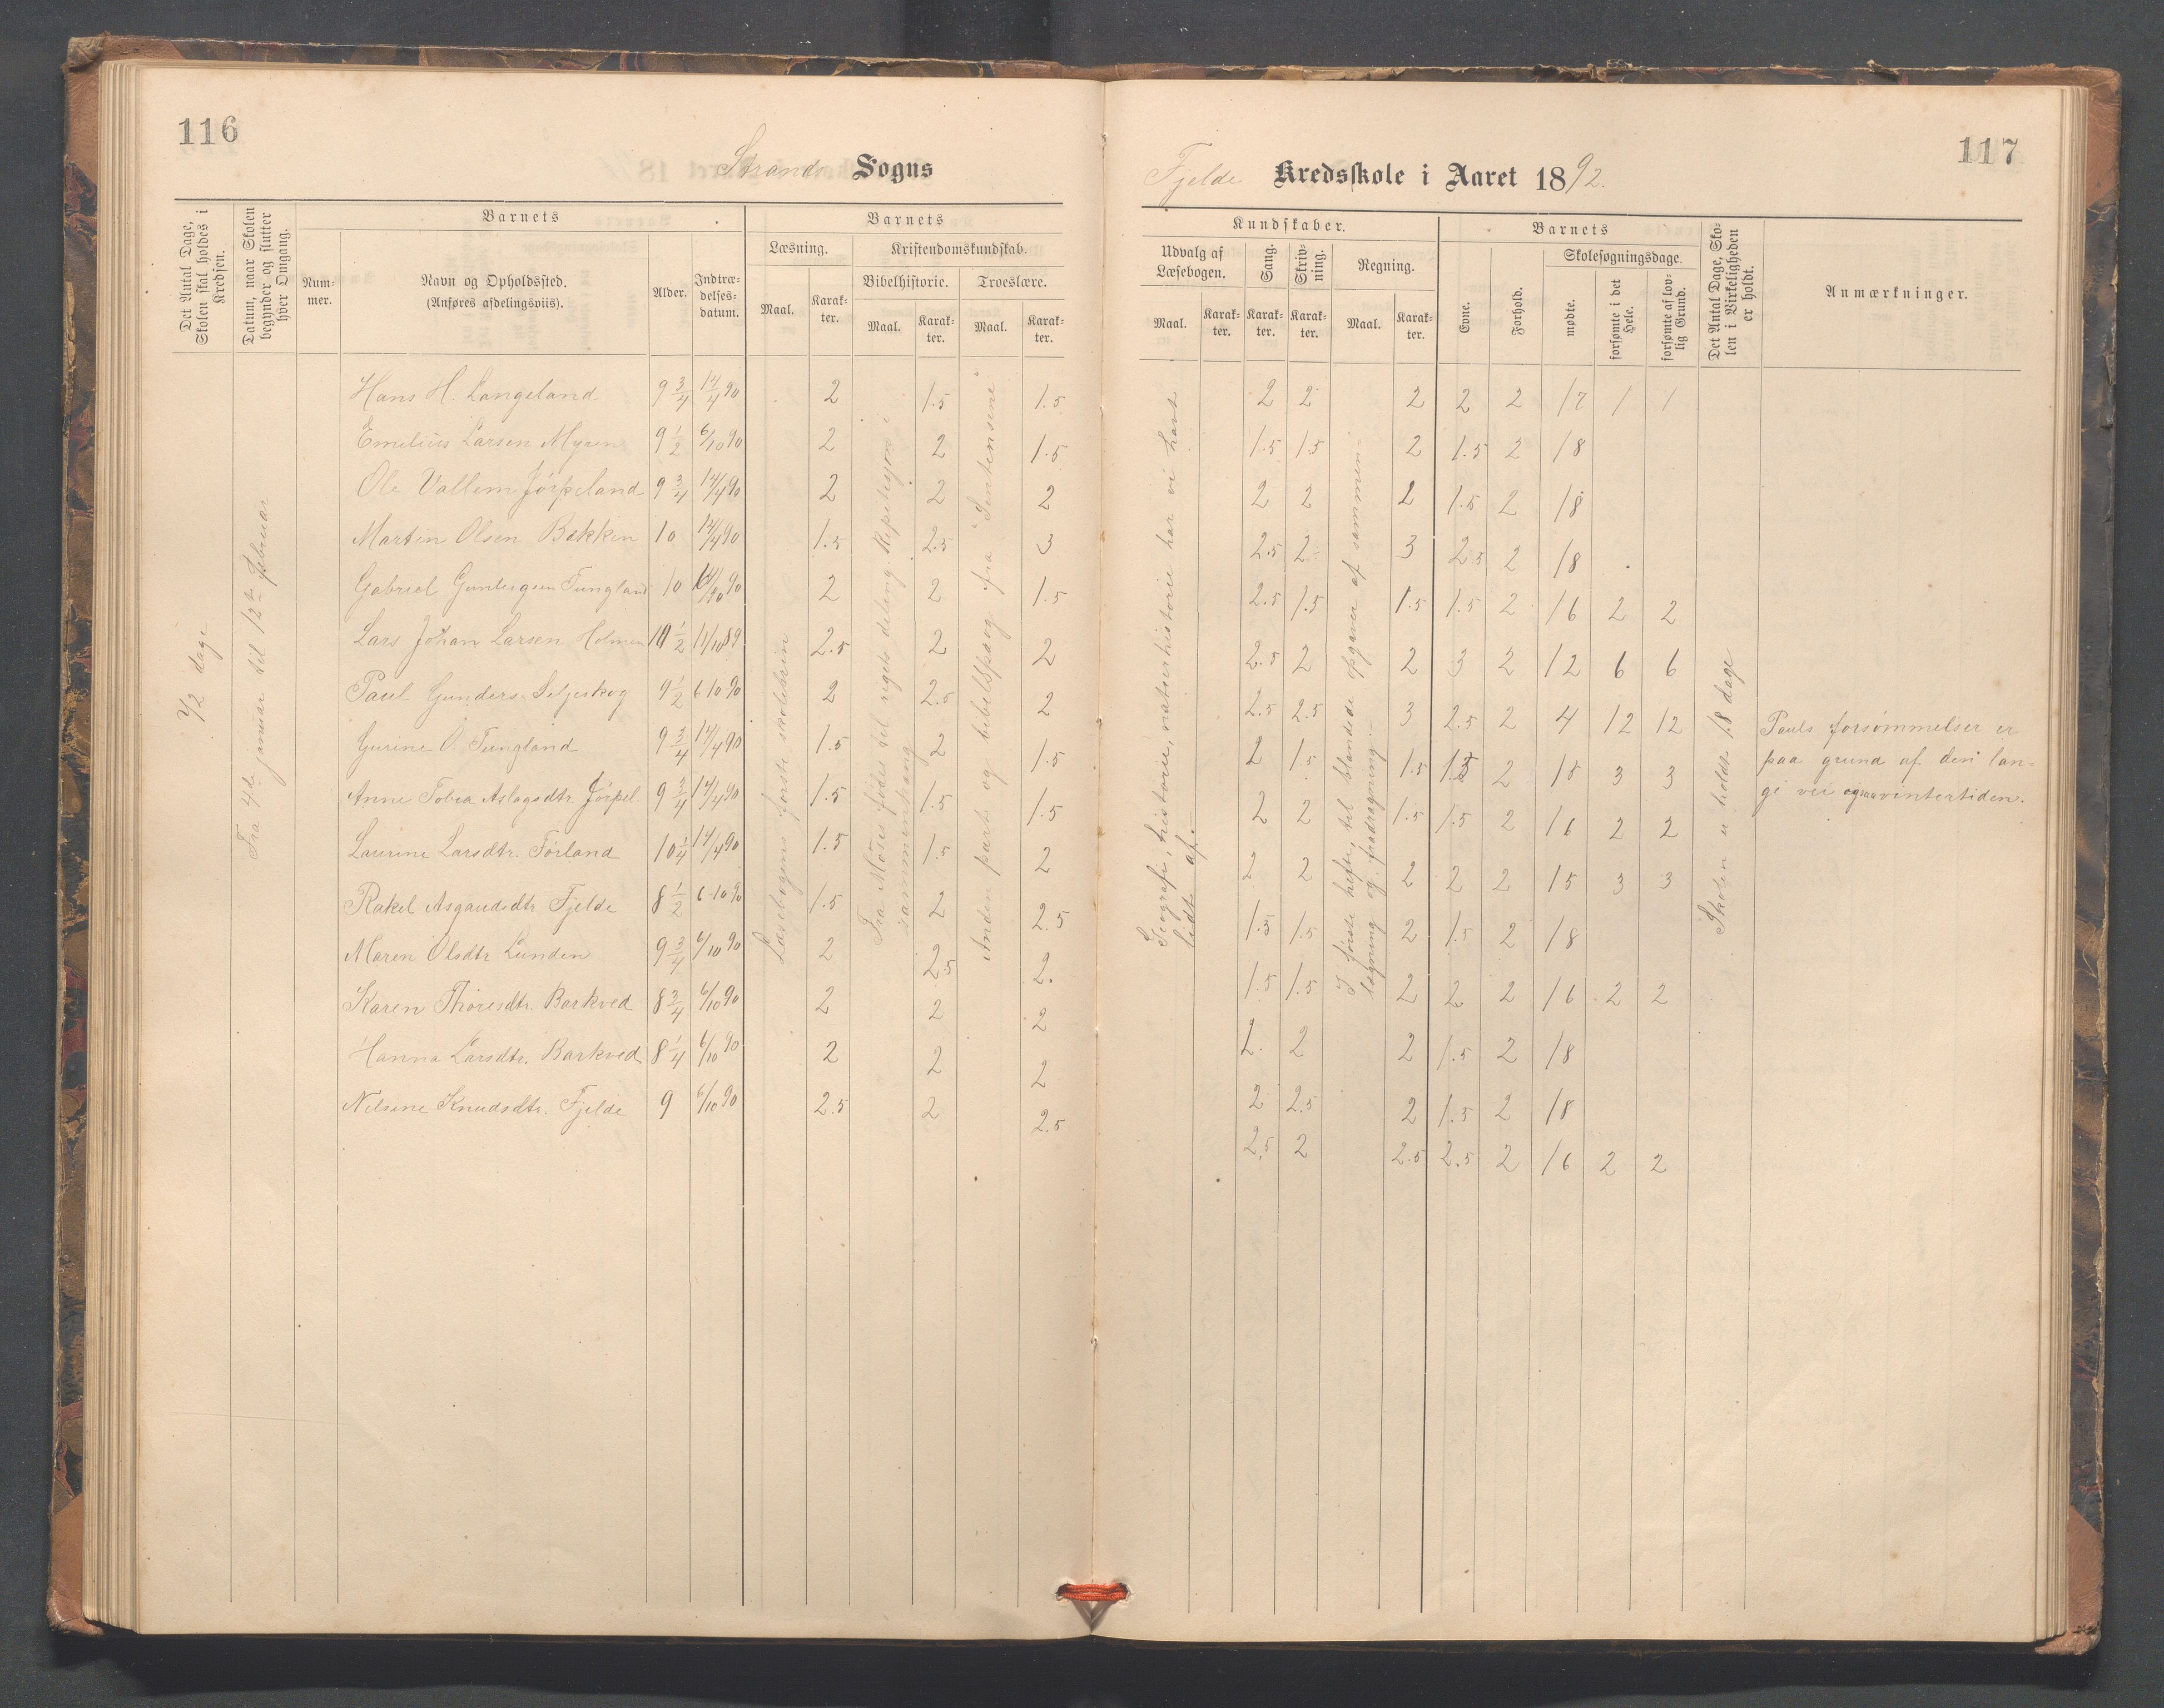 116
Strands Sogns
Det Antal Dage, Skolen skal holdes i Kredsen.
Datum, naar Skolen begynder og slutter hver Omgang.
Barnets
Num-mer.
Navn og Opholdssted.
(Anføres afdelingsviis).
Alder.
Indtræ-delses-datum.
Barnets
Læsning.
Kristendomskundskab.
Bibelhistorie.
Troeslære.
Maal.
Karak-ter.
Maal.
Karak-ter.
Maal.
Karak-ter.
Fra 4de januar til 12te februar
Hans H. Langeland 9 3/4 14/4 90 2 1.5 1.5
Emelius Larsen Myren 9 1/2 6/10 90 2 2 1.5
Ole Vallem Jörpeland 9 3/4 14/4 90 2 2 2
Martin Olsen Bakken 10 14/4 90 1.5 2.5 3
Gabriel Tungland 10 90 2 2 1.5
Lars Johan Larsen Holmen 10 1/2 11/10 89 2.5 2 2
Paul Gunders. Seljeskog 9 1/2 6 10 90 2 2.5 2
Gurine O. Tungland 9 3/4 14/4 90 1.5 2 1.5
Anne Tobea Aslagsdtr. Jörpel. 9 3/4 14/4 90 1.5 1.5 1.5
Laurine Larsdtr. Förland 10 1/4 14/4 90 1.5 1.5 2
Rakel Asgautsdtr Fjelde 8 1/2 6-10 90 1.5 2 2.5
Maren Olsdtr Lunden 9 3/4 6/10 90 2 2.5 2.
Karen Thoresdtr. Barkved 8 3/4 6/10 90 2 2 2
Hanna Larsdtr. Barkved 8 1/4 6/10 90 2 2 2
Nilsine Knudsdtr. Fjelde 9 6/10 90 2.5 2 2.5
Læsebogens første skoletrin
Fra Moses fødes til rigets deling. Repitisjon i
sammenhæng
Anden part og bibelsprog fra "Sentensene"
117
Fjelde Kredsskole i Aaret 1892.
Kundskaber.
Udvalg af Læsebogen.
Sang.
Skriv-ning.
Regning.
Maal.
Karak-ter.
Karak-ter.
Karak-ter.
Maal.
Karak-ter.
Barnets
Evne.
Forhold.
Skolesøgningsdage.
mødte.
forsømte i det Hele.
forsømte af lov-lig Grund.
Det Antal Dage, Sko-len i Virkeligheden er holdt.
Anmærkninger.
2 2 2 2 2 17 1 1
1.5 1.5 2 1.5 2 18
2 2 2 1.5 2 18
2.5 2 3 2.5 2 18
2.5 1.5 1.5 1.5 2 16 2 2
2.5 2 2 3 2 12 6 6
2.5 2.5 3 2.5 2 4 12 12
2 1.5 1.5 1.5 2 18 3 3
2 2 1.5 1.5 2 16 2 2
2 2 2 2 2 15 3 3
1.5 1.5 2 1.5 2 18
1.5 1.5 2 2 2 16 2 2
2. 2 2 1.5 2 18
2 2.5 2 1.5 2 18
2.5 2 2.5 2.5 2 16 2 2
Geografi, historie, naturhistorie har vi havt
lidt af.
I første hefte, til blandede opgaver af sammen-
lægning og fradragning.
Skolen er holdt 18 dage
Pauls forsømmelser er
paa grund af den lan-
ge vei vintertiden.